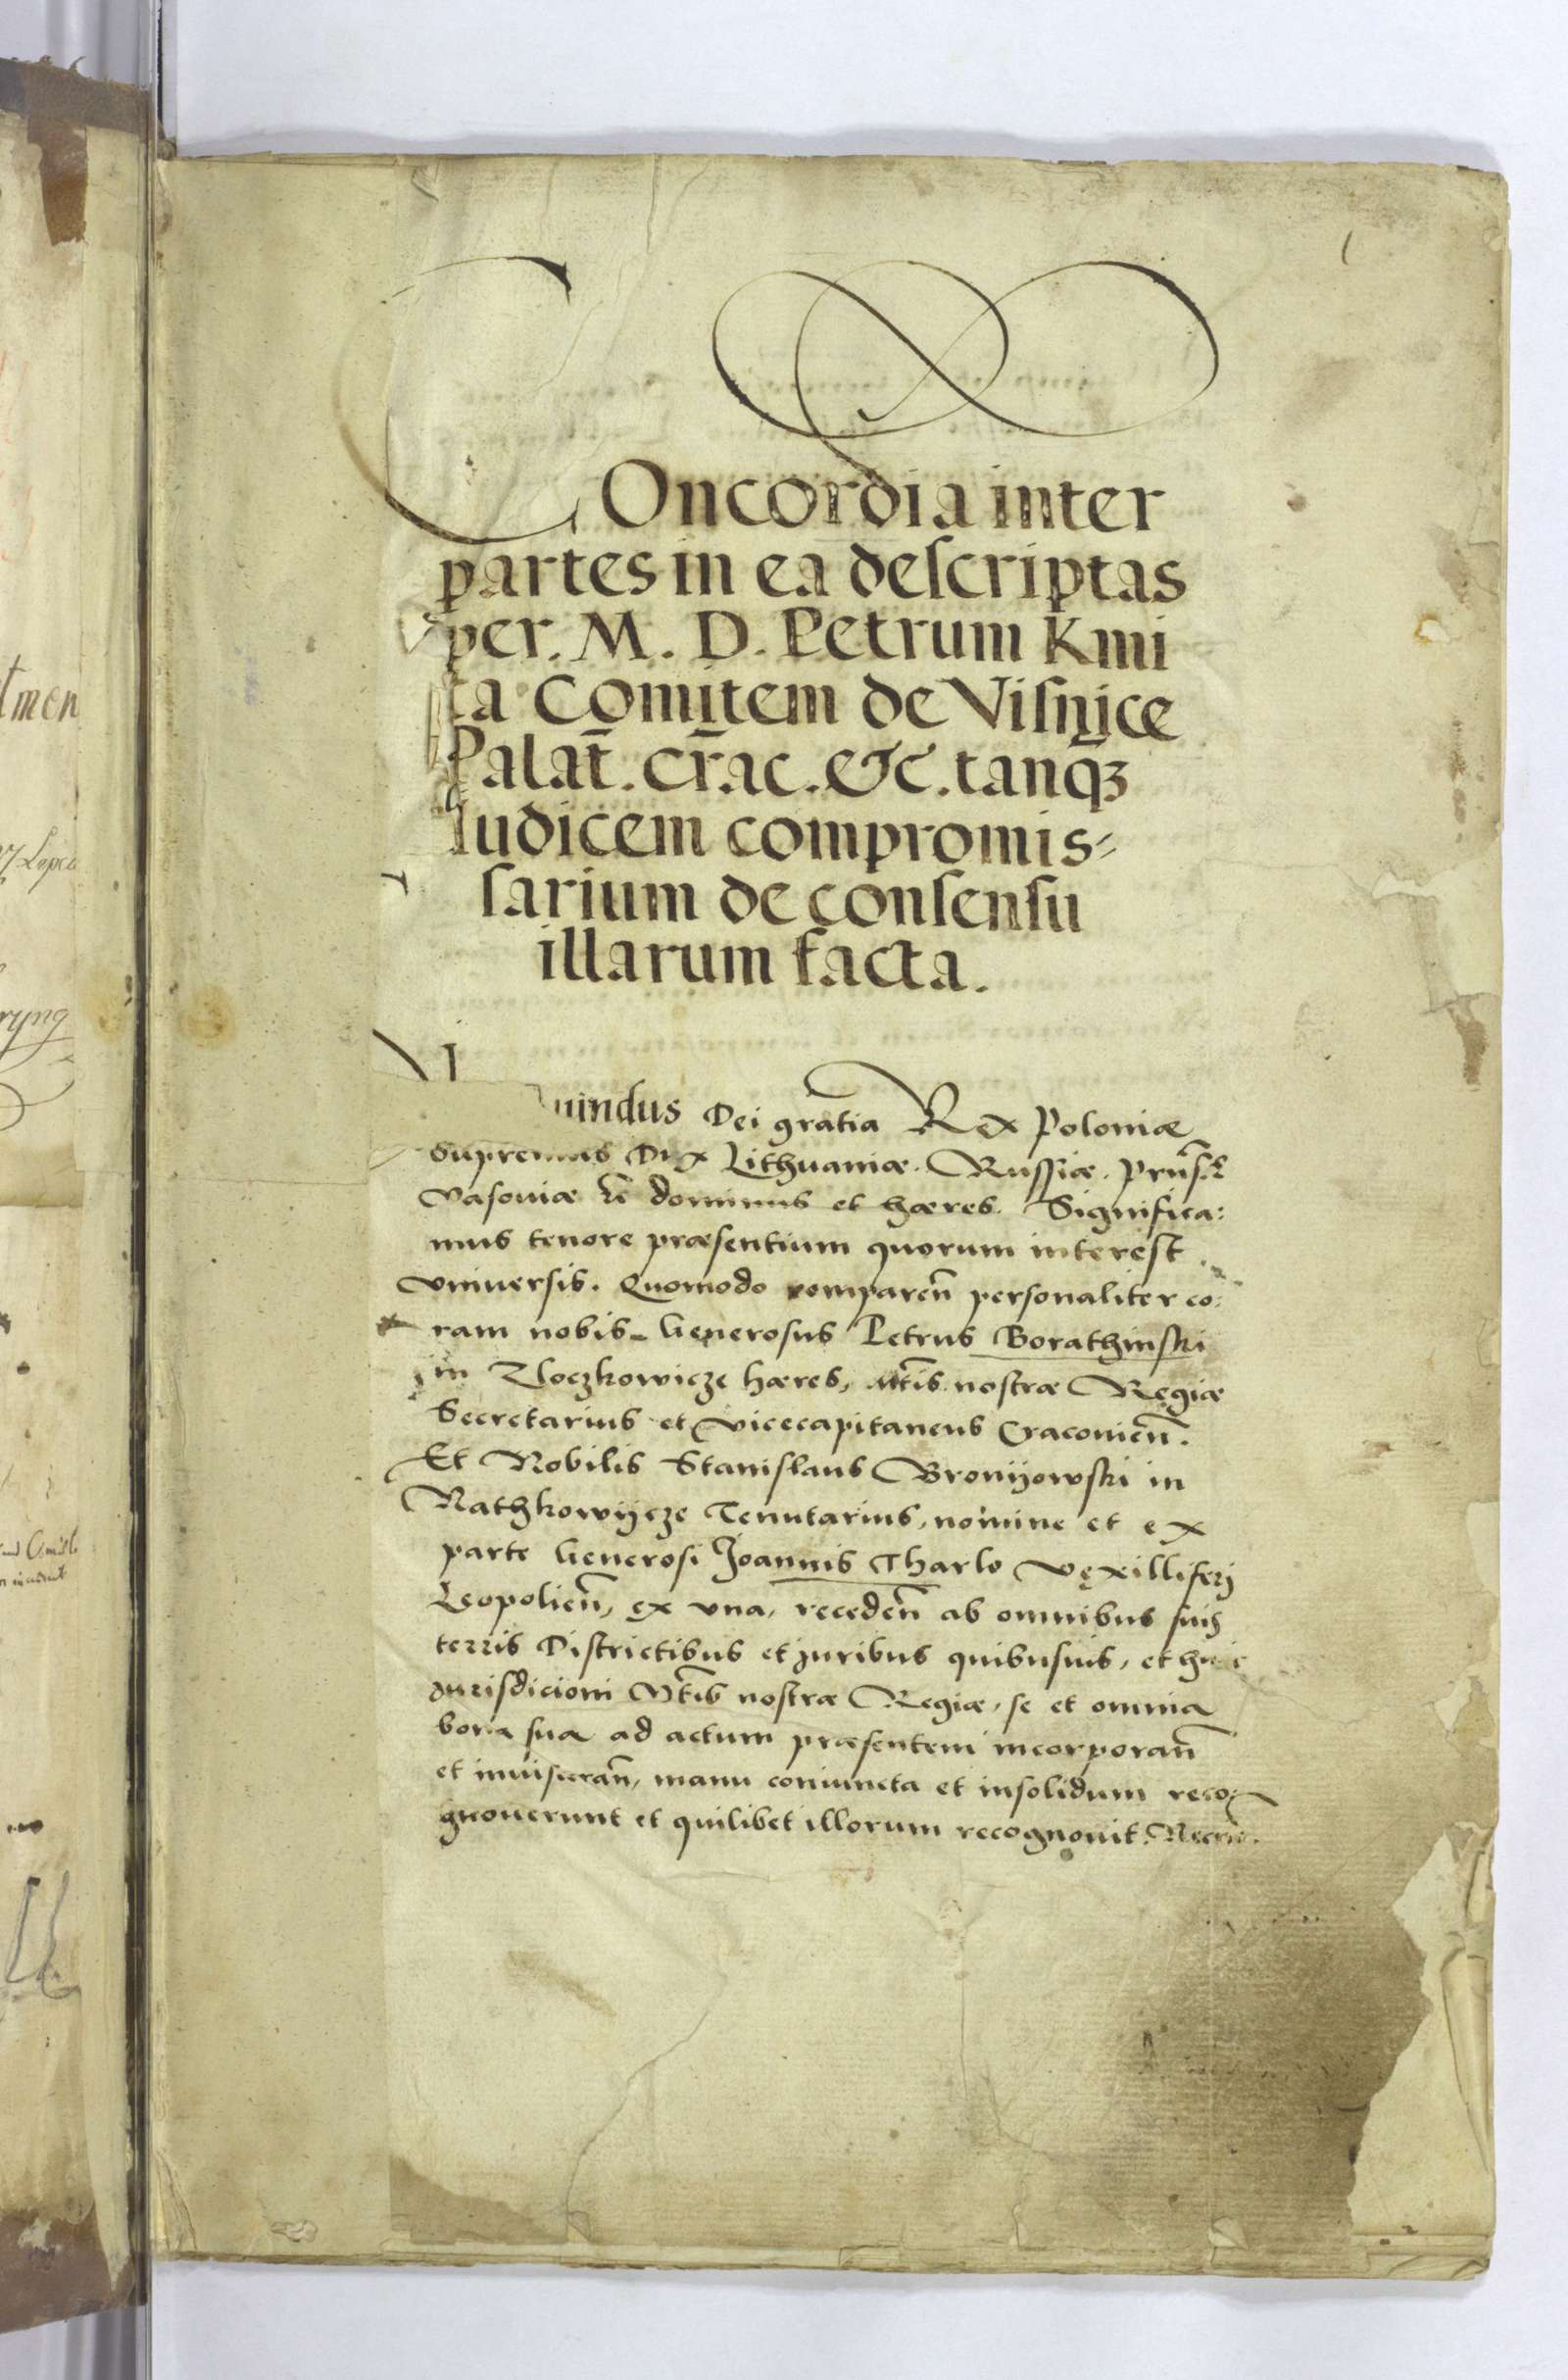 COncordia inter
partes in ea descriptas
per. M. D. Petrum Kmi
ta Comitem de Visnice
Palat̄. cr̄ac. &c. tanqꝫ
Iudicem compromis⸗
sarium de consensu
illarum facta.
mundus Dei gratia Rex Poloniæ
Supremus Dux Lithuaniæ. Russiæ. Prus̄.
Masoviæ dominus et hæres. Significa:
mus tenore præsentium quorum interest
vniuersis. Quomodo comparen̄ personaliter co:
ram nobis Generosus Petrus Borathinski
in Zloczkowicze hæres, Mt̄is nostræ Regiæ
Secretarius et vicecapitaneus Cracovien̄.
Et Nobilis Stanislaus Bronyowski in
Rathkowycze Tenutarius, nomine et ex
parte Generosi Joannis Tharlo vexilliferj
Leopolien̄, ex vna, receden̄ ab omnibus suis
terris Districtibus et juribus quibusuis, et huic
jurisdicioni Mt̄is nostræ Regiæ, se et omnia
bona sua ad actum præsentem incorporan̄
et inuisceran̄, manu coniuncta et insolidum reco:
gnouerunt et quilibet illorum recognouit.